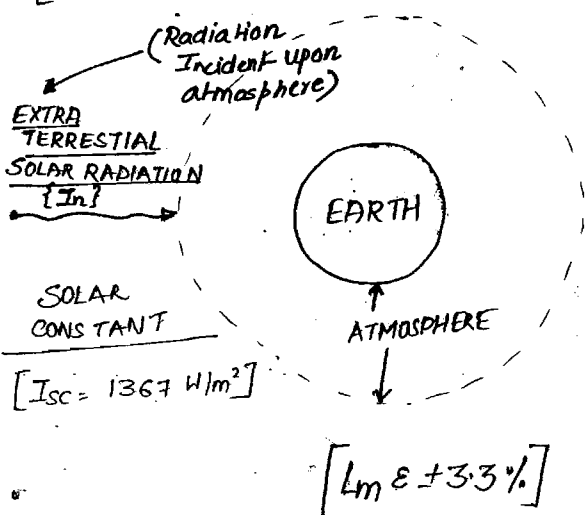 (Radiation
Incident upon
atmosphere)
EXTRA
TERRESTIAL
SOLAR RADIATION
{In}
EARTH
SOLAR
CONSTANT
ATMOSPHERE
[Isc = 1367 W/m²]
[Lm ε ±3.3%]